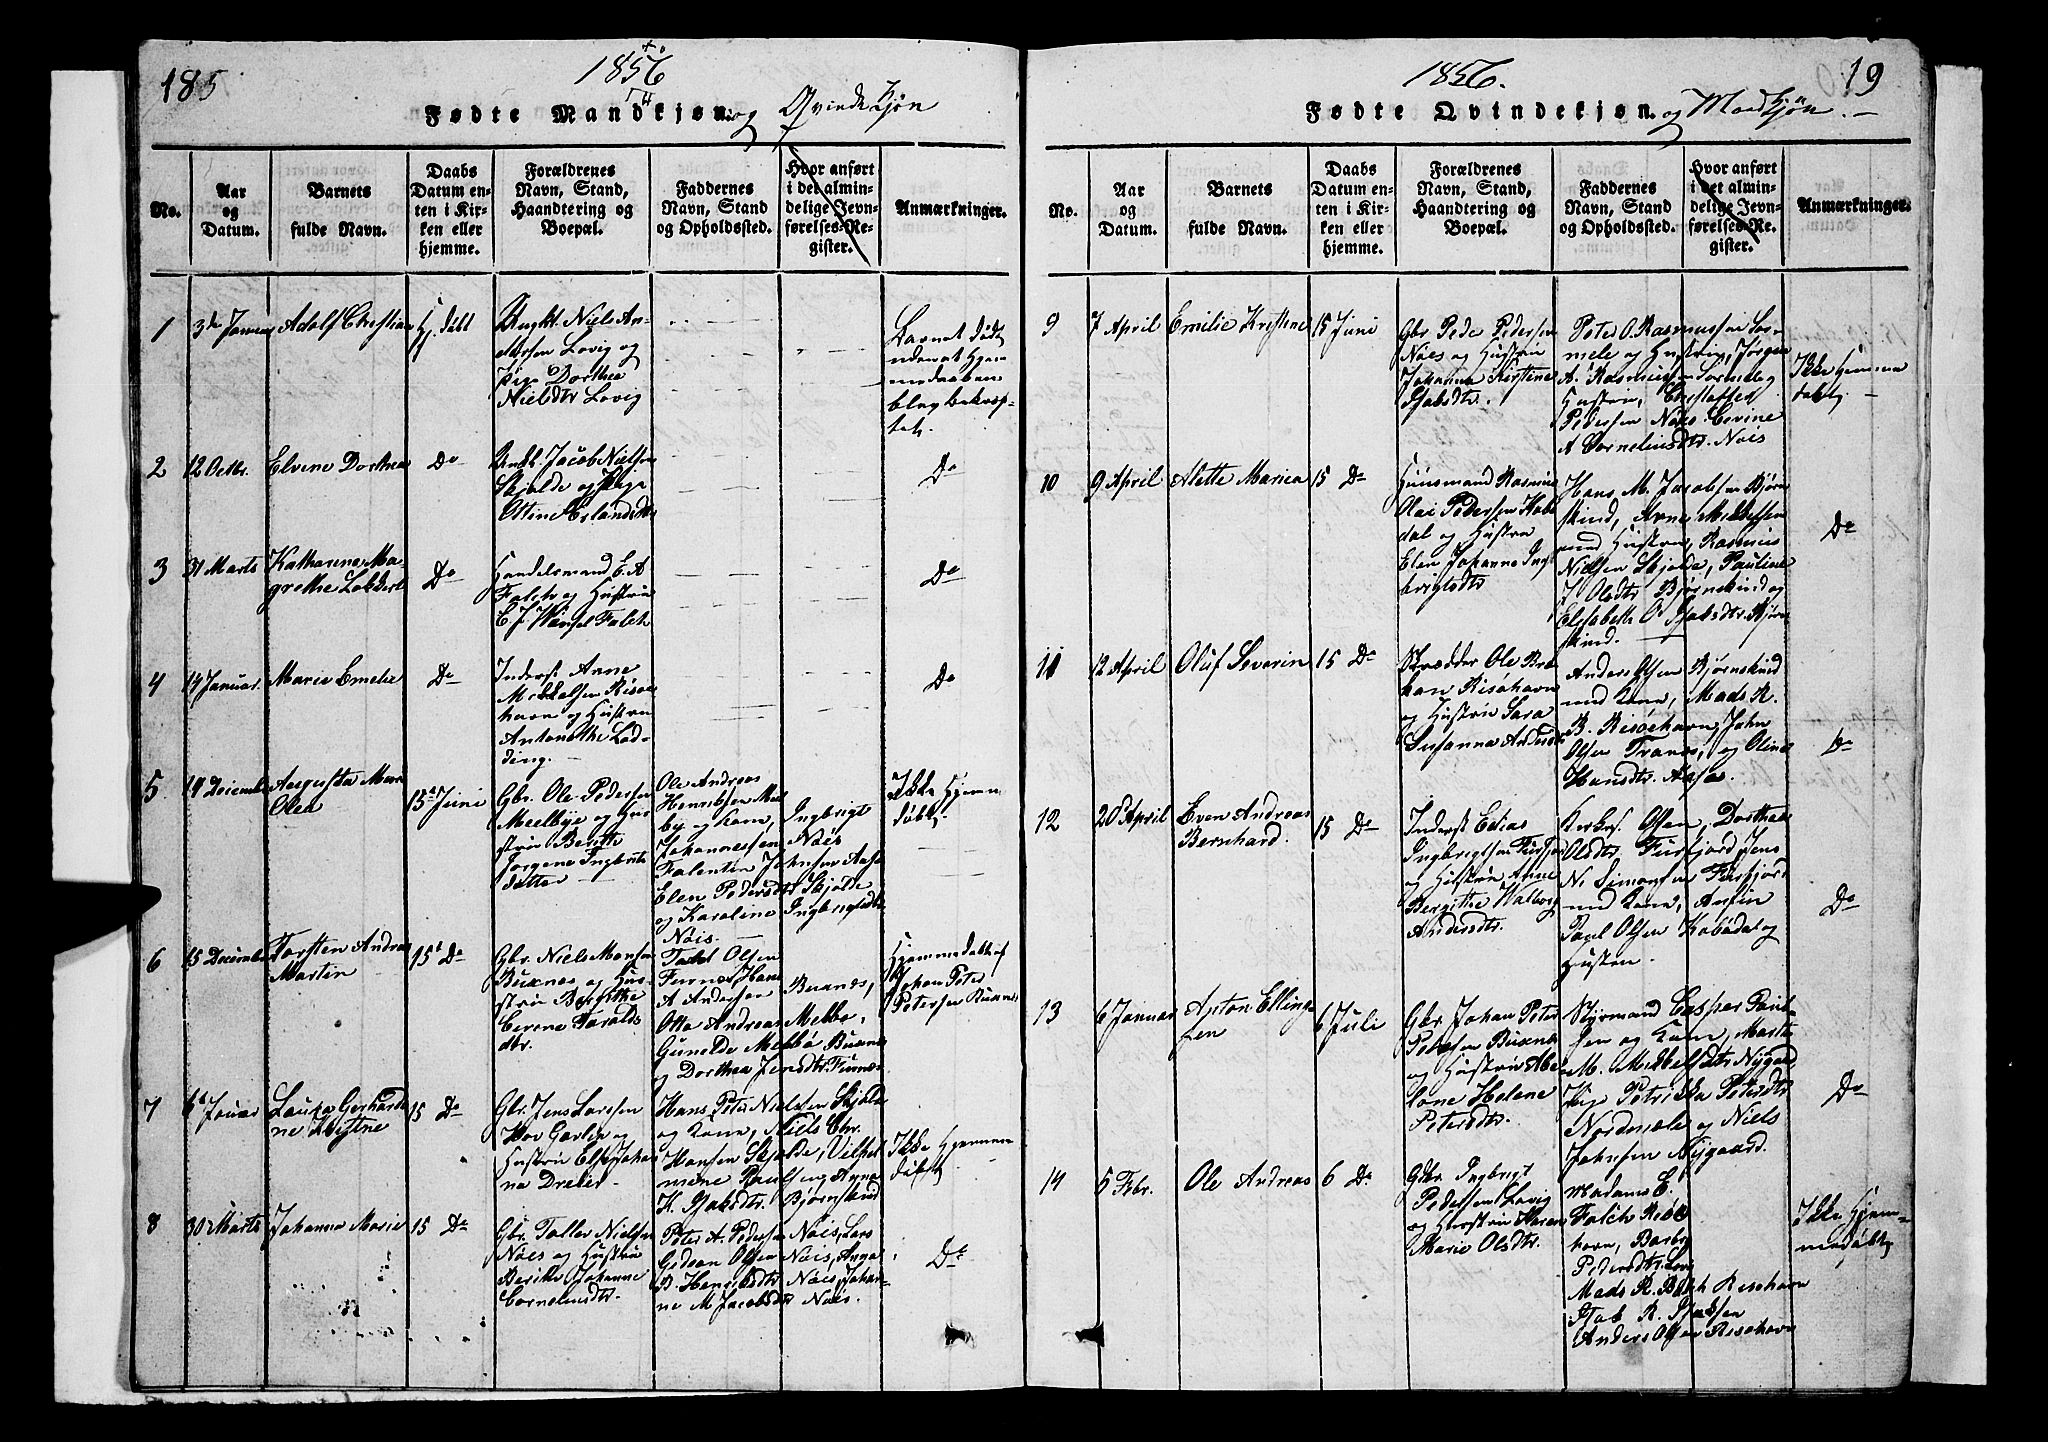 185
1856
Fødte Mandkjøn og Qvindekjøn
No.
Aar og Datum.
Barnets fulde Navn.
Daabs Datum enten i Kirken eller hjemme.
Forældrenes Navn, Stand, Haandtering og Boepæl.
Faddernes Navn, Stand og Opholdssted.
Hvor anført i det almindelige Jevnførelses-Register.
Anmærkninger.
1
3de Januar
Adolf Christian
Hj. døbt
Ungkl. Niels An-
dersen Lovig og
Pige Dorthea
Nielsdtr Lovig
Barnet døde
2
12 Octbr.
Elvine Dorthea
Do
Ungkl. Jacob Nielsen
Skjolde og Pige
Do
3
31 Marts
Katharena Ma-
grethe
Do
Handelsmand E. A
Falch og Hustrue
Falch
Do
4
14 Januar
Marie Emelie
Do
Inderst Arne
Mikkelsen Risøe
havn og Hustrue
Antonette Lod-
ding.
Do
5
19 December
Augusta
Olea
15de Juni
Gbr. Ole Pedersen
Melbye og Hu-
strue Berith
Jørgene Ingbrits
datter
Ole Andreas
Henriksen Mel
by og Kone,
Ingbrigt
Johannessen Nois
Falentin Johnsen Aasa
Elen Pedersdtr Skjolde
og Karoline Ingbrigtsdtr
Nois.
Ikke Hjemme
døbt
6
15 December
Torsten Andreas
Martin
15de Do
Gbr. Niels Monsen
Buxnes og Hu-
strue Bergithe
Cerene Taralds
dtr.
Olsen
Hans
A Andersen Buxnes,
Otto Andreas Melbo,
Gunelde Melbo Buxnes
og Dorthea Jensdtr
Hjemmedøbt af
Johan Peter
Petersen Buxnes
7
6te Januar
Laura Gerhardi
ne
15 Do
Gbr. Jens Larssen
og
Hustrue Else Johan
na Dreier
Hans Peter Nielsen Skjolde
og Kone, Niels Chr.
Hansen Skjolde, Vilhel
mine
H. Isaksdtr. Bjørnskind
Ikke Hjemme
døbt
8
30 Marts
Johanna Marie
15 Do
Gbr. Toller Nielsen
Nois og Hustrue
Berithe Johanne
Corneliusdtr.
Peter A. Pedersen Nois, Lars
Gedeon Olsen Nois, Anna
B. Henriksdtr Nois, Johan-
ne M Jacobsdtr Nois.
Do
1856.
19
Fødte Qvindekjøn og Mandkjøn.
No.
Aar og Datum.
Barnets fulde Navn.
Daabs Datum enten i Kirken eller hjemme.
Forældrenes Navn, Stand, Haandtering og Boepæl.
Faddernes Navn, Stand og Opholdssted.
Hvor anført i det almindelige Jevnførelses-Register.
Anmærkninger.
9
7 April
Emilie Kristene
15 Juni
Gbr Peder Pedersen
Nois og Hustrue
Johanna Kirstene
Isaksdtr.
Peter O. Rasmussen Sor-
mele og Hustrue, Jørgen
A. Rasmussen Sormele og
Hustrue, Christoffer
Pedersen Nois Cerine
A Corneliusdtr. Nois
Ikke Hjemme
døbt
10
9 April
Alette Marie
15 Do
Huusmand Rasmus
Olai Pedersen Kobe
dal og Hustrue
Elen Johanna Ing
brigtsdtr
Hans M. Jacobsen Bjørn
skind, Arne Mikkelsen
med Hustrue, Rasmus
Nielsen Skjolde, Pauline
J Olsdtr Bjørnskind og
Elisabeth O Isaksdtr. Bjørn
skind.
Do
11
12 April
Oluf Severin
15 Do
Skrædder Ole
Risøhavn
og Hustrue Sara
Susanna Andersdtr
Anders Olsen Bjørnskind
med Kone, Mads R.
B. Risøehavn, John
Olsen Tranes, og Oline
Hansdtr. Aasa.
Do
12
20 April
Even Andreas
Bernhard.
15 Do
Inderst Edias
Ingbrigtsen Furfjor
og Hustrue Anne
Bergitthe Walborg
Andersdtr.
Olsen, Dorthea
Olsdtr Furfjord, Jens
N. Simonsen Furfjord
med Kone, Anfin
Paul Olsen Kobedal og
Hustrue.
Do
13
6 Januar
Anton Elling-
sen
6 Juli
Gbr Johan Peter
Petersen Buxnes
og Hustrue Abe
lone Helene
Petersdtr.
Styrmand Casper
sen og Kone, Marta
M. Mikkelsdtr Nygaard
Pige Petrikka Petersdtr
Nordmele og Niels
Johnsen Nygaard.
Do
14
5 Febr.
Ole Andreas
6 Do
Gbr. Ingbrigt
Pedersen Lovig
og Hustrue Karen
Marie Olsdtr.
Madame E.
Falch Risø
havn, Barbro
Pedersdtr. Lovi
Mads R. Risøhavn
Isak R. Isaksen
Anders Olsen Risøhavn
Ikke Hjem-
medøbt